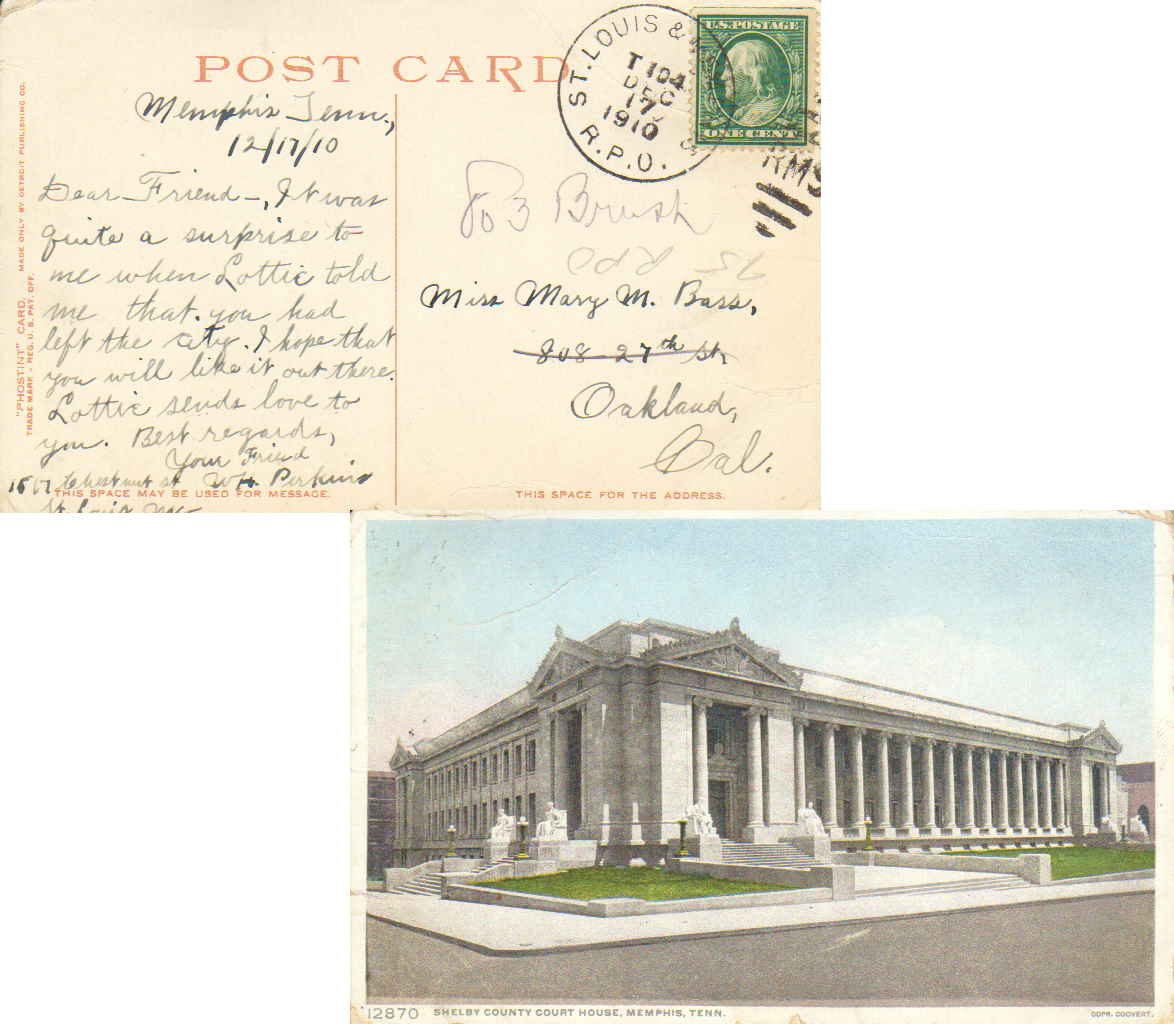 POST CARD
"PHOSTINT" CARD. MADE ONLY BY DETROIT PUBLISHING CO.
TRADE MARK - REG. U. S. PAT. OFF.
ST. LOUIS &
T 104
DEC
17
1910
R.P.O.
U.S. POSTAGE
ONE CENT
RMS
Memphis Tenn.,
12/17/10
Dear Friend-, It was
quite a surprise to
me when Lottie told
me that you had
left the city. I hope that
you will like it out there.
Lottie sends love to
you. Best regards,
Your Friend
WH. Perkins
Chestnut st
St Louis Mo-
THIS SPACE MAY BE USED FOR MESSAGE.
803 Brush
Miss Mary M. Bass,
808 27th St,
Oakland,
Cal.
THIS SPACE FOR THE ADDRESS.
12870 SHELBY COUNTY COURT HOUSE, MEMPHIS, TENN. COPR. COOVERT.